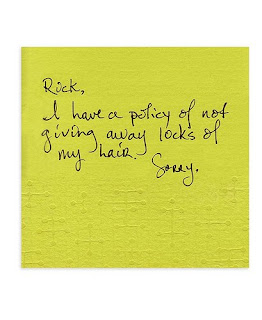 Rick,
I have a policy of not
giving away locks of
my hair. Sorry.